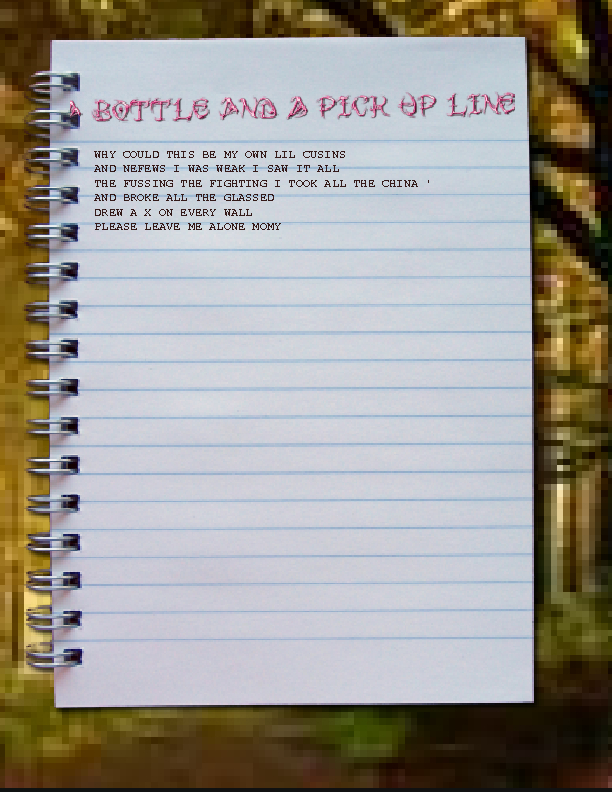 A BOTTLE AND A PICK UP LINE
WHY COULD THIS BE MY OWN LIL CUSINS
AND NEFEWS I WAS WEAK I SAW IT ALL
THE FUSSING THE FIGHTING I TOOK ALL THE CHINA '
AND BROKE ALL THE GLASSED
DREW A X ON EVERY WALL
PLEASE LEAVE ME ALONE MOMY